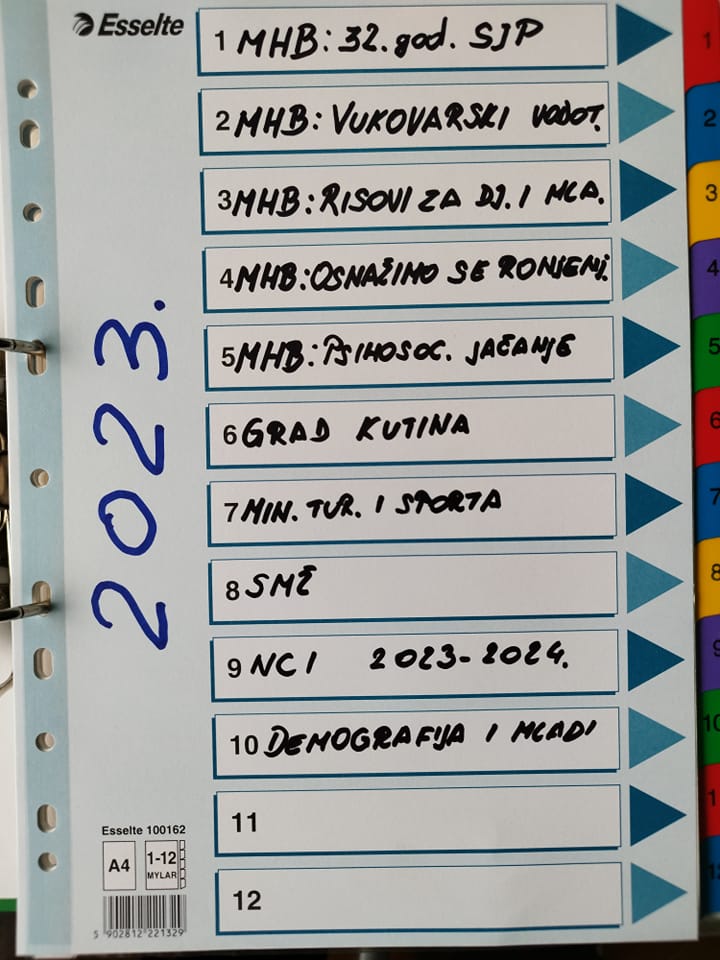 Esselte
1 MHB: 32. god. SJP
2 MHB: VUKOVARSKI VODOT.
3 MHB: RISOVI ZA DJ. I MLA.
4 MHB: OSNAŽIMO SE RONJENJ.
5 MHB: PSIHOSOC. JAČANJE
6 GRAD KUTINA
7 MIN. TUR. I SPORTA
8 SMŽ
9 NCI 2023-2024.
10 DEMOGRAFIJA I MLADI
11
12
2023.
Esselte 100162
A4
1-12
MYLAR
5 902812 221329
1
2
3
4
5
6
7
8
9
10